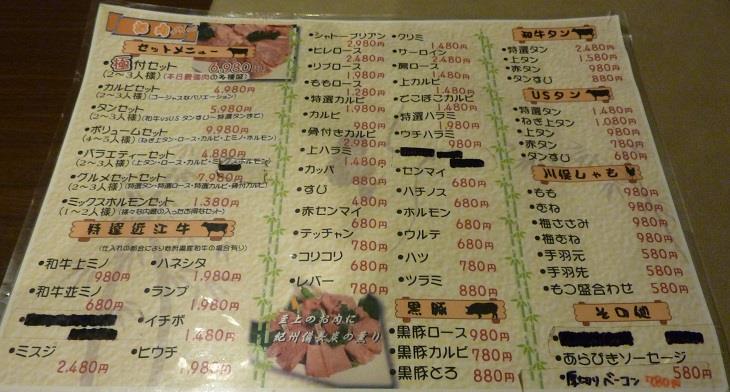 セットメニュー
極付セット 6,980円
(2～3人様)(本日最強肉の多種盛)
カルビセット 4,980円
(2～3人様)(ゴージャスなバリエーション)
タンセット 5,980円
(2～3人様)(和牛vsUSタンすじ～特選タンまで)
ボリュームセット 9,980円
(4～5人様)(ねぎ上タン・ロース・カルビ・上ミノ・ホルモン)
バラエティーセット 4,880円
(2～3人様)(上タン・ロース・カルビ・ミックスホルモン)
グルメセットセット 7,980円
(2～3人様)(特選タン・特選ロース・特選カルビ・骨付カルビ)
ミックスホルモンセット 1,380円
(1～2人様)(様々な内臓の入ったお得なセット)
特選近江牛
(仕入れの都合により他所調産和牛の場合有り)
和牛上ミノ 980円
和牛並ミノ 680円
ミスジ 2,480円
ハネシタ 1,980円
ランプ 1,980円
イチボ 1,480円
ヒウチ 1,980円
シャトーブリアン 2,980円
ヒレロース 1,980円
リブロース 1,980円
ももロース 1,280円
特選カルビ 1,980円
カルビ 980円
骨付きカルビ 2,980円
上ハラミ 1,980円
カッパ 880円
すじ 480円
赤センマイ 780円
テッチャン 780円
コリコリ 680円
レバー 780円
至上のお肉に
紀州備長炭の薫り
クリミ 1,480円
サーロイン 1,480円
肩ロース 1,180円
上カルビ 1,480円
でこぼこカルビ 1,480円
特選ハラミ 1,480円
ウチハラミ 980円
センマイ 680円
ハチノス 680円
ホルモン 680円
ウルテ 680円
ハツ 680円
ツラミ 880円
黒豚
黒豚ロース 980円
黒豚カルビ 780円
黒豚とろ 880円
和牛タン
特選タン 2,480円
上タン 1,580円
赤タン 980円
タンすじ 880円
USタン
特選タン 1,480円
ねぎ上タン 1,080円
上タン 980円
赤タン 780円
タンすじ 680円
川俣しゃも
もも 980円
むね 980円
梅ささみ 980円
梅むね 980円
手羽元 580円
手羽先 580円
もつ盛合わせ 580円
その他
あらびきソーセージ 580円
厚切りベーコン